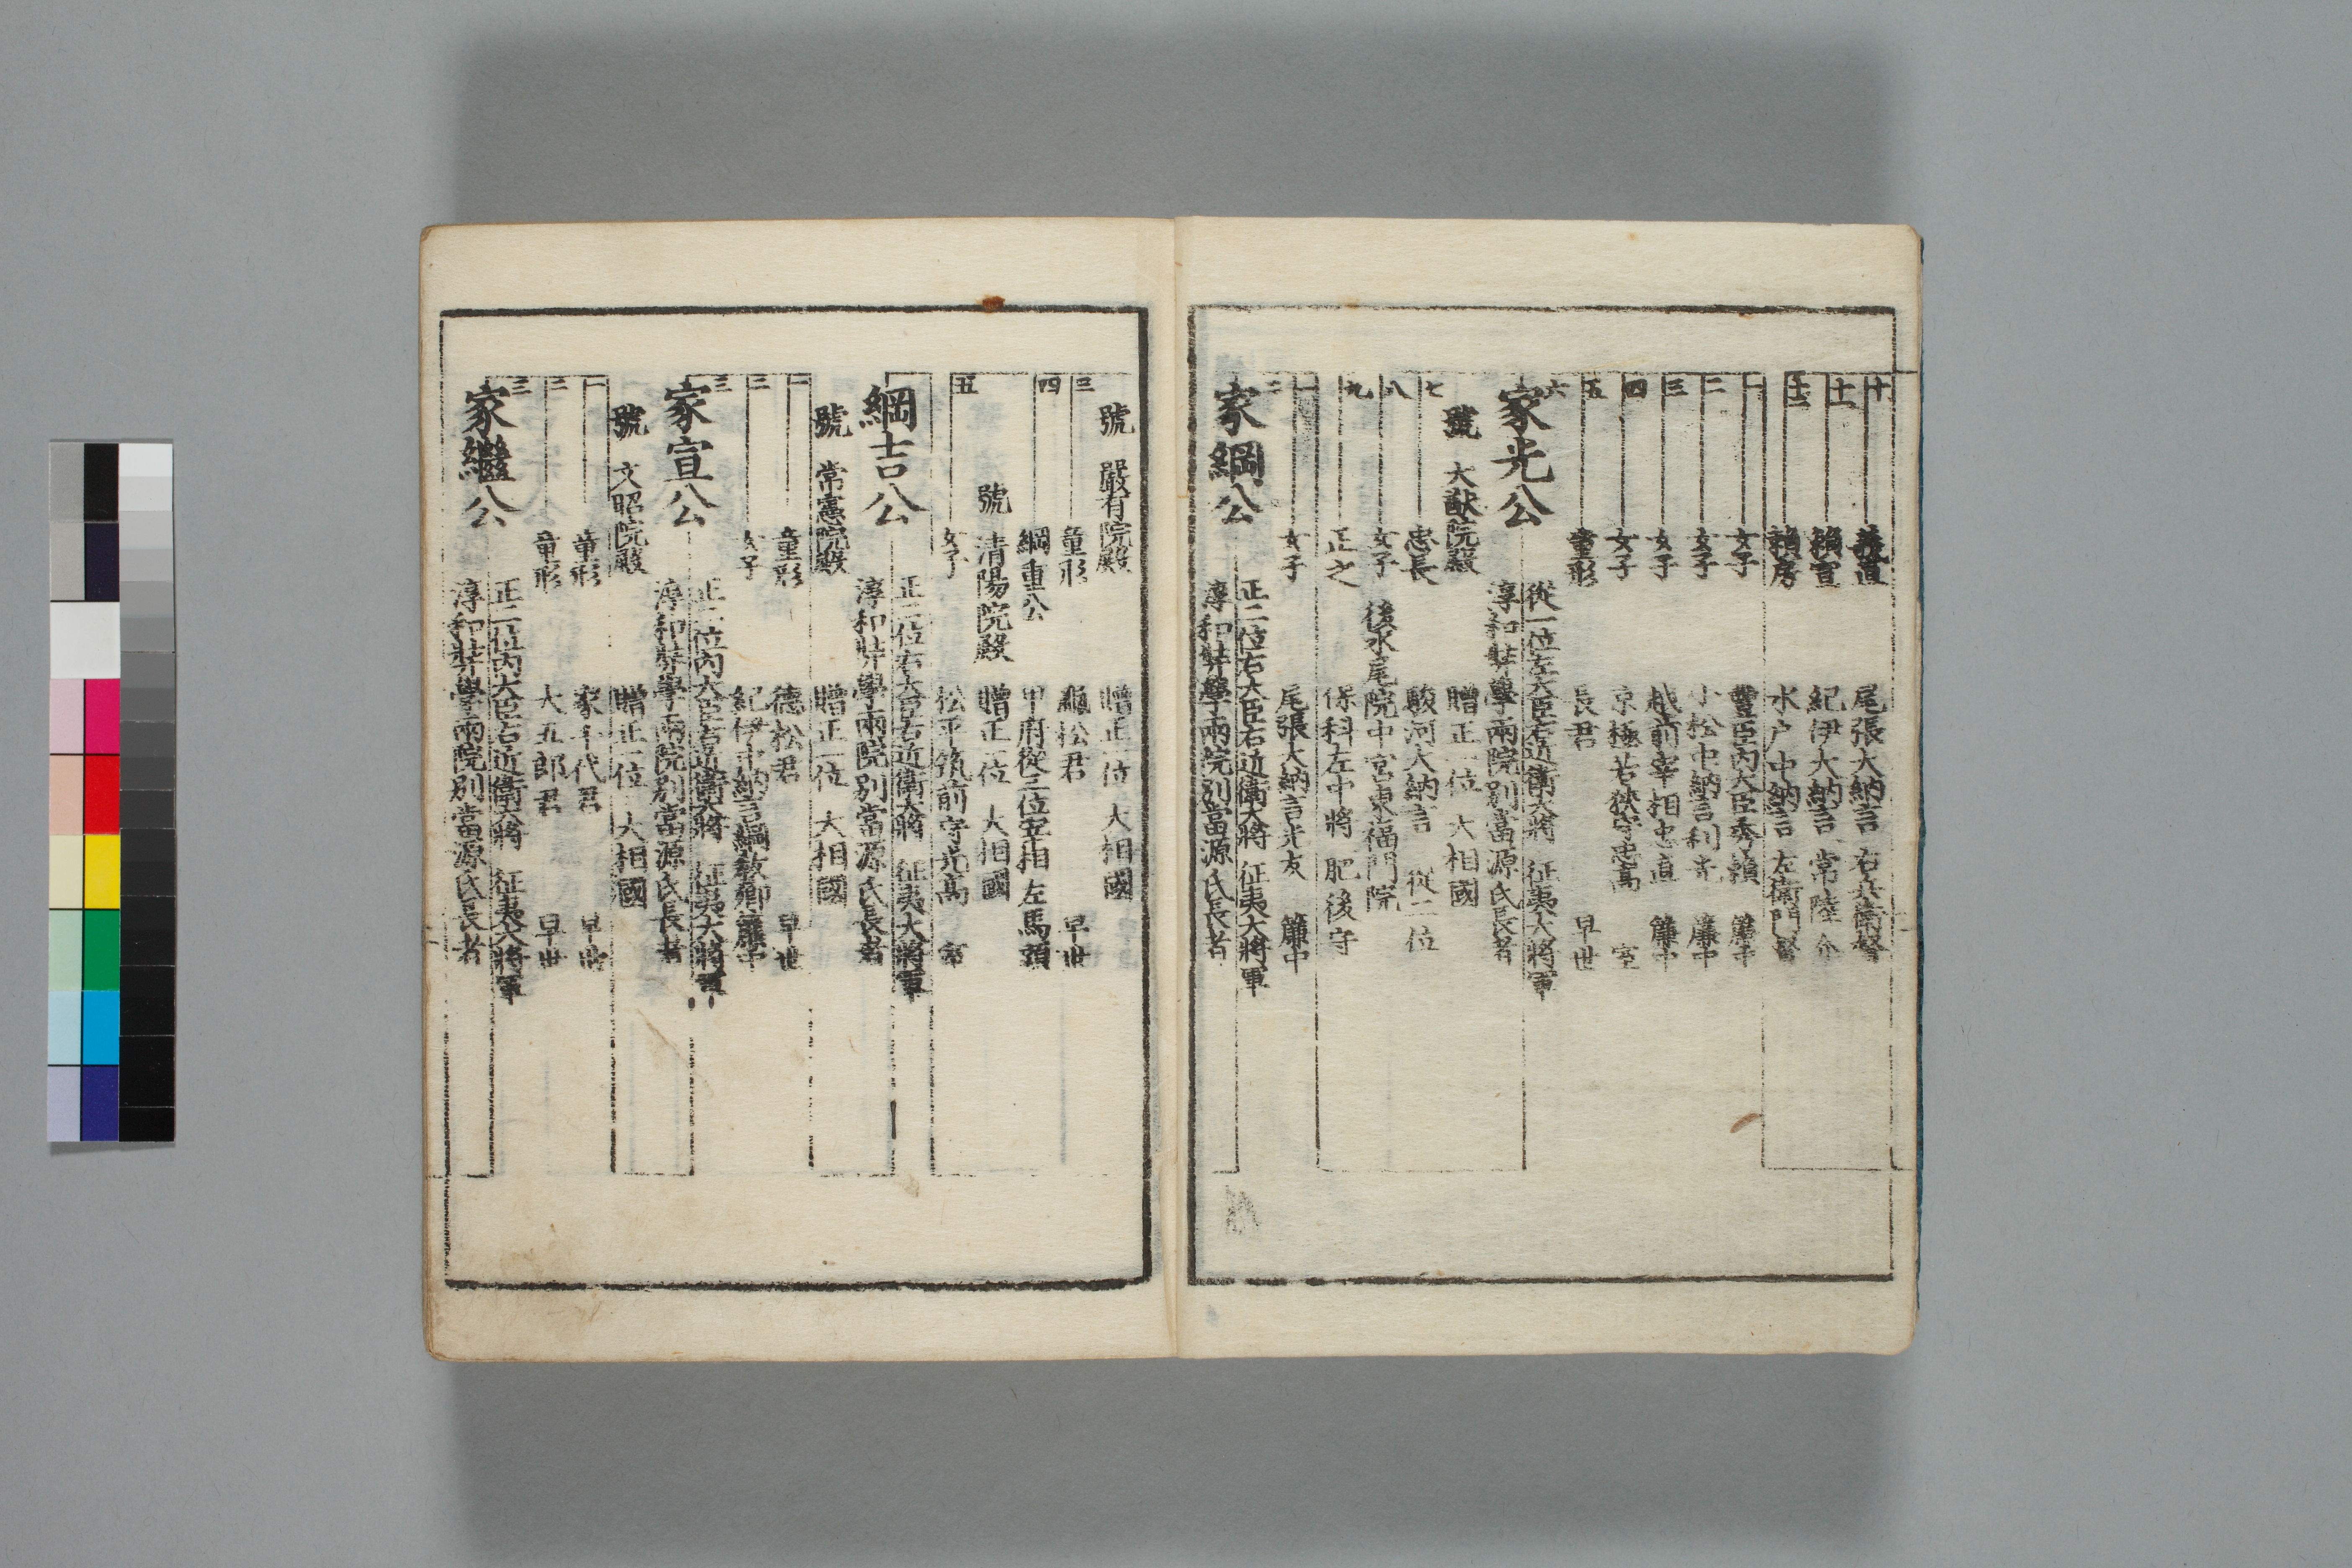 十 義直 尾張大納言 右兵衛督
十一 頼宣 紀伊大納言 常陸介
十二 頼房 水戸中納言 左衛門督
一 女子 豐臣内大臣秀頼 簾中
二 女子 小松中納言利光 簾中
三 女子 越前宰相忠直 簾中
四 女子 京極若狹守忠高 室
五 童形 長君 早世
六 家光公 從一位左大臣右近衛大將 征夷大將軍
淳和弉學兩院別當源氏長者
號 大猷院殿 贈正一位 大相國
七 忠長 駿河大納言 從二位
八 女子 後水尾院中宮東福門院
九 正之 保科左中將 肥後守
一 女子 尾張大納言光友 簾中
二 家綱公 正二位右大臣右近衛大將 征夷大將軍
淳和弉學兩院別當源氏長者
號 嚴有院殿 贈正一位 大相國
三 童形 龜松君 早世
四 綱重公 甲府從三位宰相 左馬頭
號 清陽院殿 贈正一位 大相國
五 女子 松平筑前守光高 室
綱吉公 正二位右大臣右近衛大將 征夷大將軍
淳和弉學兩院別當源氏長者
號 常憲院殿 贈正一位 大相國
一 童形 德松君 早世
二 女子 紀伊中納言綱教卿簾中
三 家宣公 正二位内大臣右近衛大將 征夷大將軍
淳和弉學兩院別當源氏長者
號 文昭院殿 贈正一位 大相國
一 童形 家千代君 早世
二 童形 大五郎君 早世
三 家繼公 正二位内大臣右近衛大將 征夷大將軍
淳和弉學兩院別當源氏長者